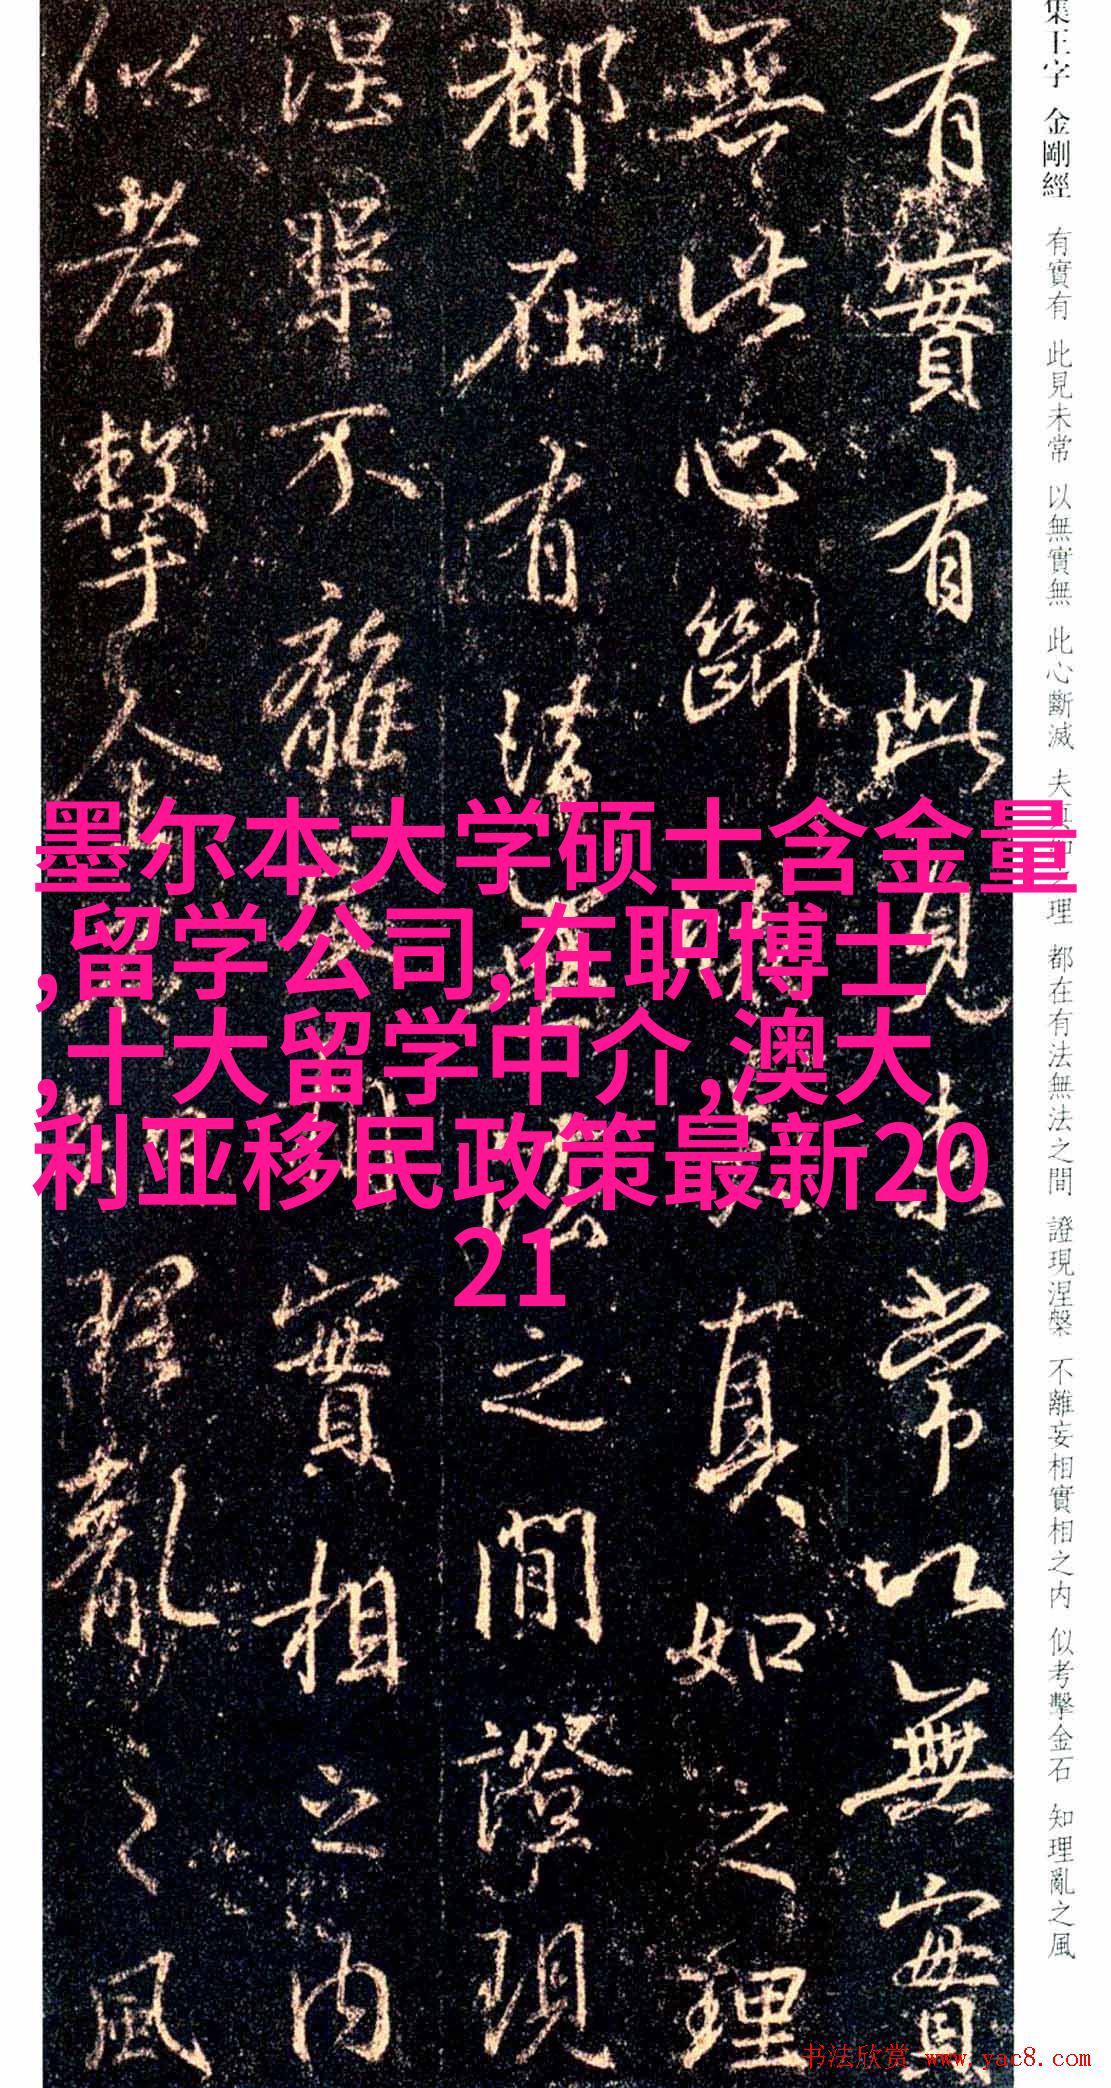 集王字 金剛經 有實有 此見未常 以無實無 此心斷滅 夫真如之理 都在有法無法之間 證現涅槃 不離妄相實相之内 似考擊金石 知理亂之風
有實有此見未常以無實
無此心斷滅夫真如之理
都在有法無法之間證現
涅槃不離妄相實相之内
似考擊金石知理亂之風
墨尔本大学硕士含金量
,留学公司,在职博士
,十大留学中介,澳大
利亚移民政策最新20
21
书法欣赏 www.yac8.com